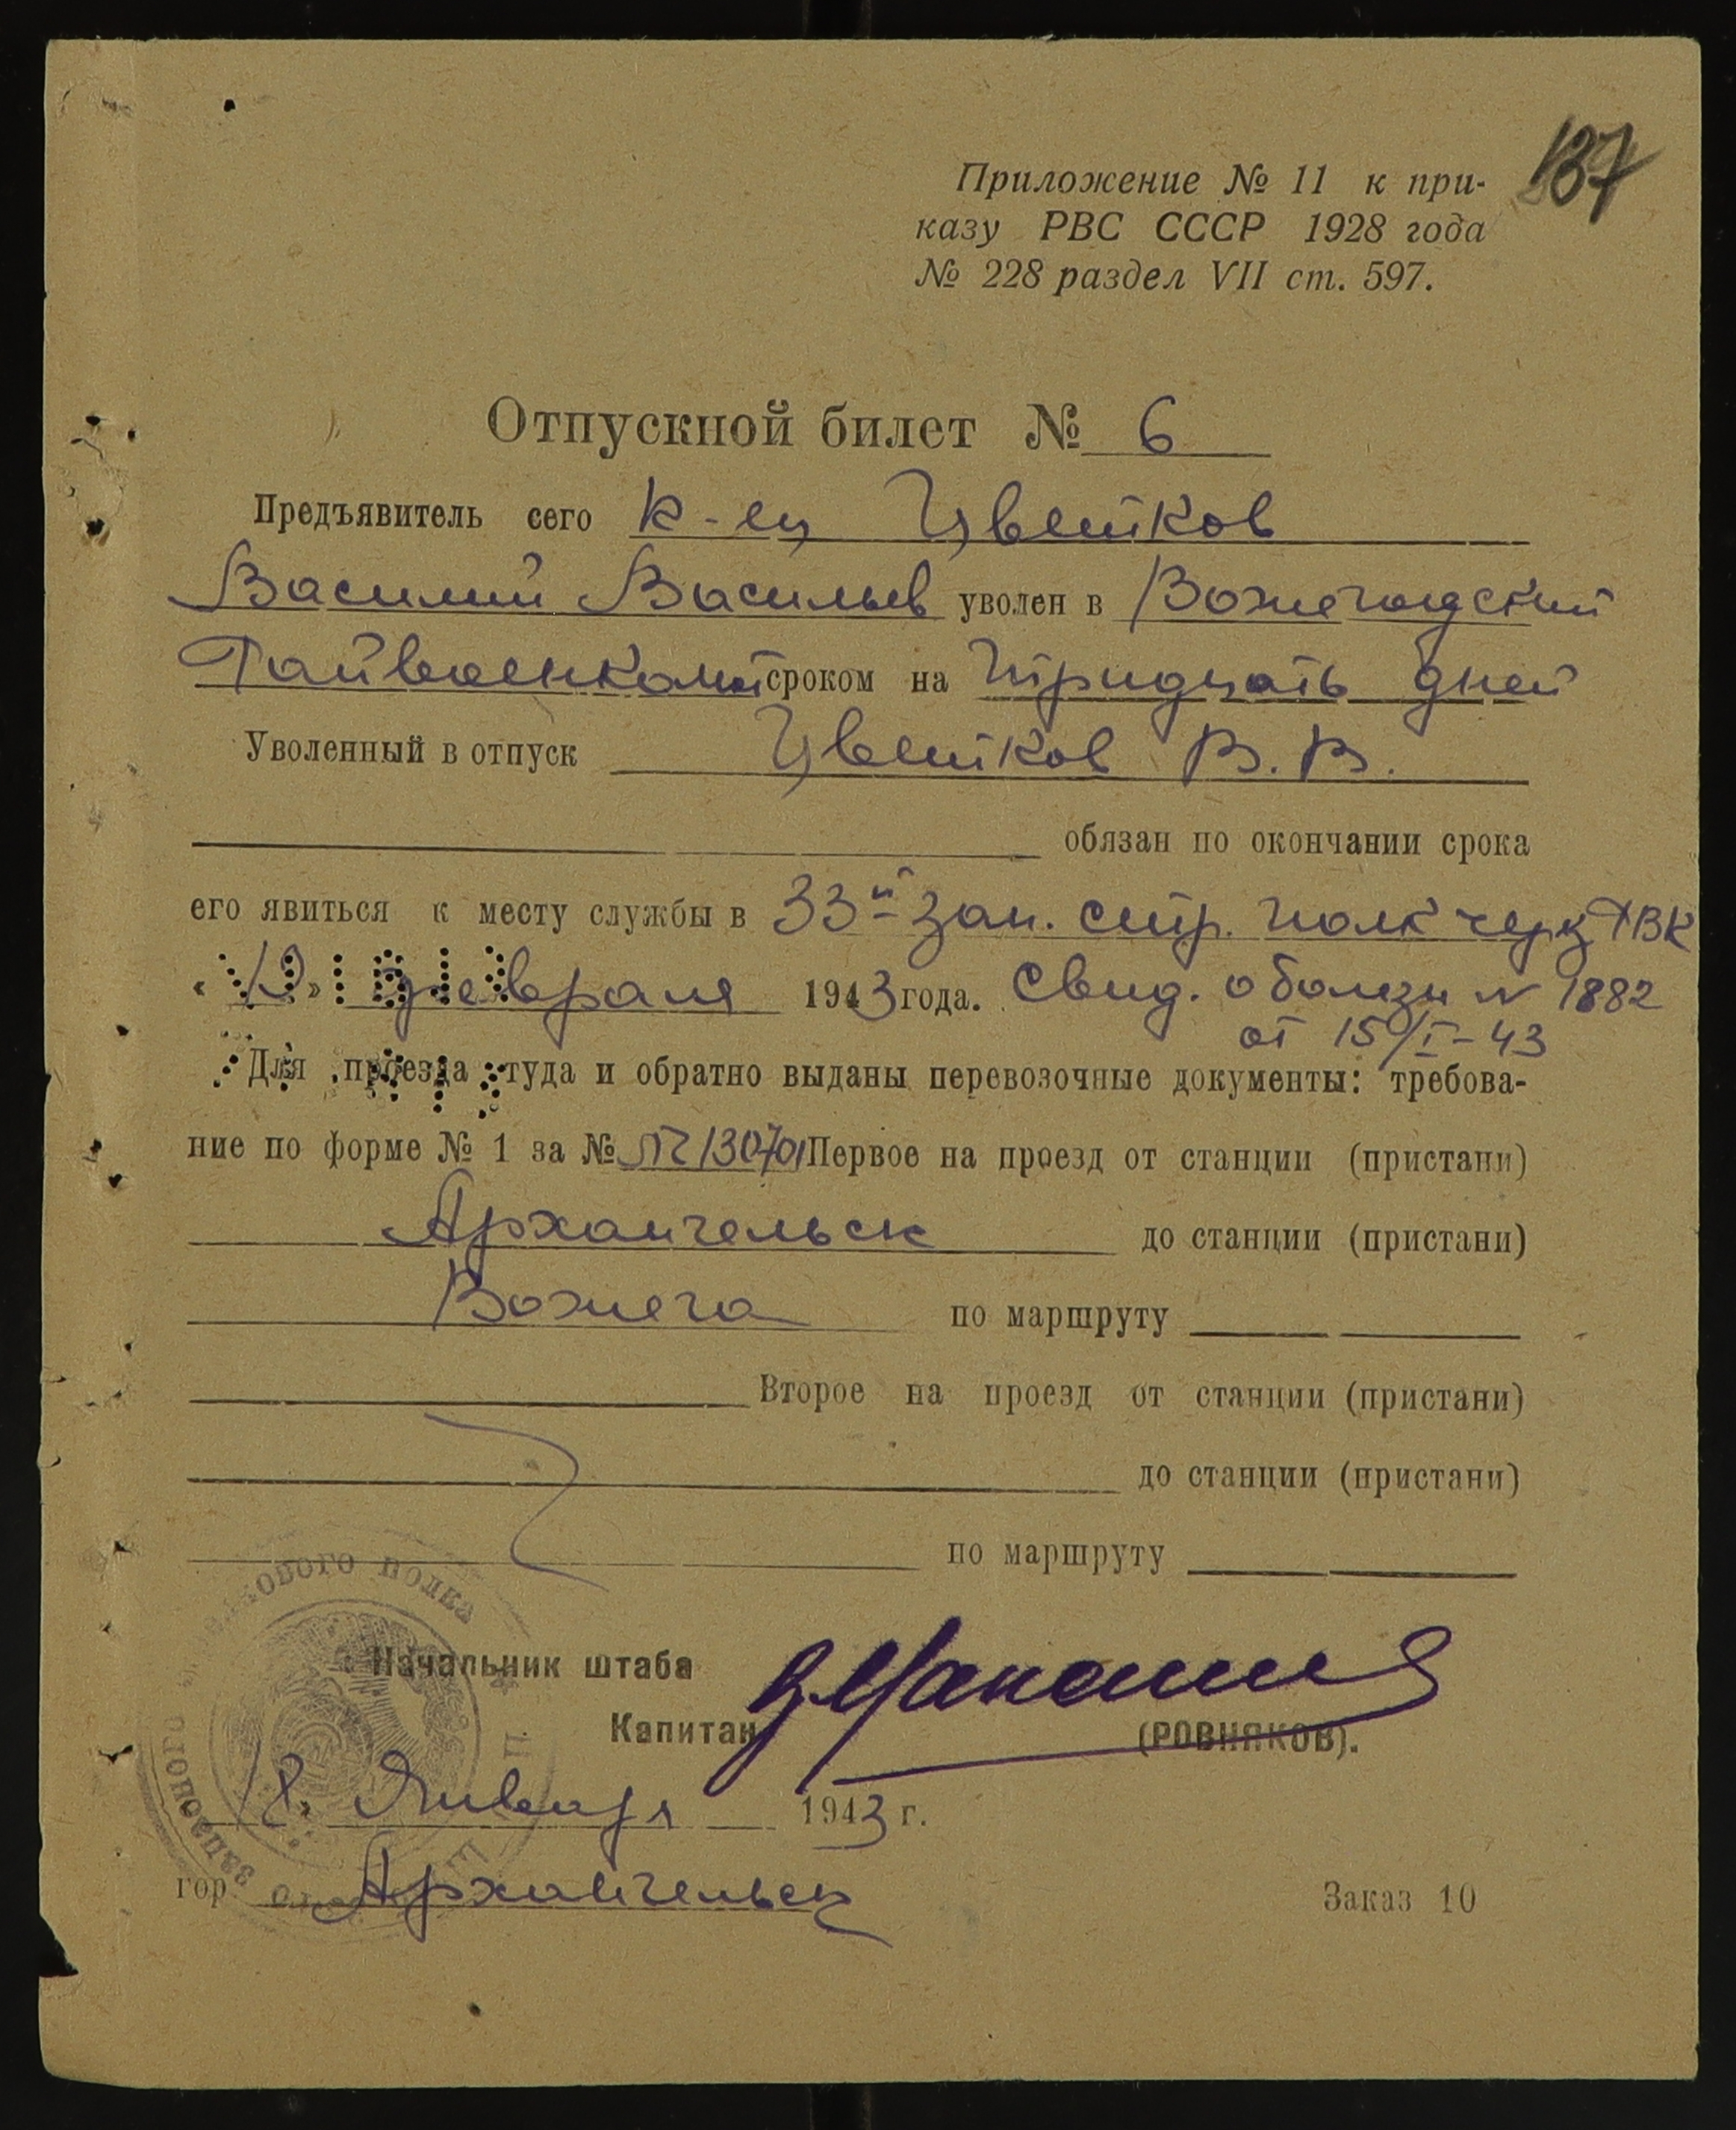 137
Приложение № 11 к при-
казу РВС СССР 1928 года
№ 228 раздел VII ст. 597.
Отпускной билет № 6
Предъявитель сего к-ец Цветков
Василий Васильев уволен в Вожегодский
Райвоенкомат сроком на тридцать дней
Уволенный в отпуск Цветков В. В.
обязан по окончании срока
его явиться к месту службы в 33й зап. стр. полк через РВК
« » февраля 1943 года. Свид. о болезн № 1882
от 15/I-43
Для проезда туда и обратно выданы перевозочные документы: требова-
ние по форме № 1 за № 130701 Первое на проезд от станции (пристани)
Архангельск до станции (пристани)
Вожега по маршруту
Второе на проезд от станции (пристани)
до станции (пристани)
по маршруту
запасного стрелкового полка
Начальник штаба
Капитан (РОВНЯКОВ).
18 Января 1943 г.
гор. Архангельск
Заказ 10